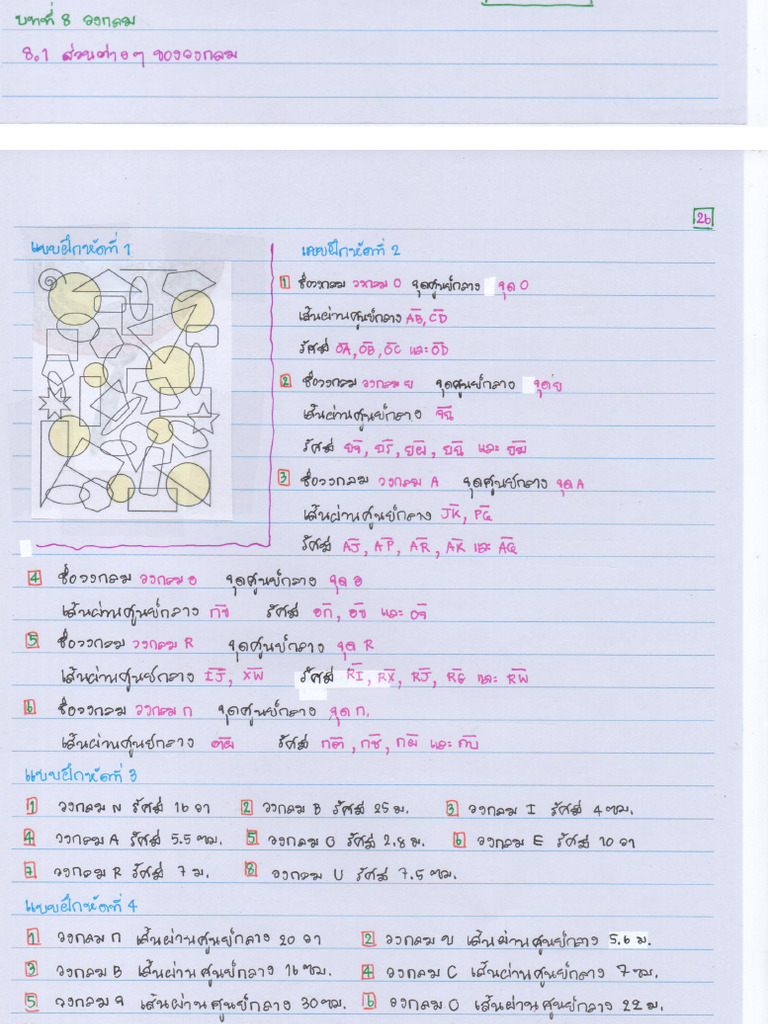 บทที่ 8 วงกลม
8.1 ส่วนต่างๆ ของวงกลม
26
แบบฝึกหัดที่ 1
แบบฝึกหัดที่ 2
1 ชื่อวงกลม วงกลม O จุดศูนย์กลาง จุด O
เส้นผ่านศูนย์กลาง AB, CD
รัศมี OA, OB, OC และ OD
2 ชื่อวงกลม วงกลม ย จุดศูนย์กลาง จุด ย
เส้นผ่านศูนย์กลาง
รัศมี และ
3 ชื่อวงกลม วงกลม A จุดศูนย์กลาง จุด A
เส้นผ่านศูนย์กลาง JK, PQ
รัศมี AJ, AP, AR, AK และ AQ
4 ชื่อวงกลม วงกลม อ จุดศูนย์กลาง จุด อ
เส้นผ่านศูนย์กลาง กข รัศมี อก, อข และ อจ
5 ชื่อวงกลม วงกลม R จุดศูนย์กลาง จุด R
เส้นผ่านศูนย์กลาง IJ, XW รัศมี RI, RX, RJ, RG และ RW
6 ชื่อวงกลม วงกลม ก จุดศูนย์กลาง จุด ก.
เส้นผ่านศูนย์กลาง ตผ รัศมี กต, กช, กผ และ กบ
แบบฝึกหัดที่ 3
1 วงกลม N รัศมี 16 วา 2 วงกลม B รัศมี 25 ม. 3 วงกลม I รัศมี 4 ซม.
4 วงกลม A รัศมี 5.5 ซม. 5 วงกลม O รัศมี 2.8 ม. 6 วงกลม E รัศมี 10 วา
7 วงกลม R รัศมี 7 ม. 8 วงกลม U รัศมี 7.5 ซม.
แบบฝึกหัดที่ 4
1 วงกลม ก เส้นผ่านศูนย์กลาง 20 วา 2 วงกลม ข เส้นผ่านศูนย์กลาง 5.6 ม.
3 วงกลม B เส้นผ่านศูนย์กลาง 16 ซม. 4 วงกลม C เส้นผ่านศูนย์กลาง 7 ซม.
5 วงกลม เส้นผ่านศูนย์กลาง 30 ซม. 6 วงกลม O เส้นผ่านศูนย์กลาง 22 ม.